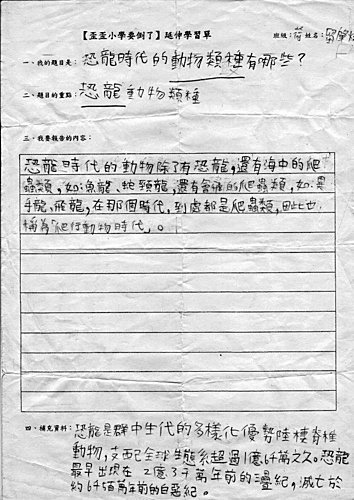 【歪歪小學要倒了】延伸學習單 班級： 姓名：
一、我的題目是：恐龍時代的動物類種有哪些？
二、題目的重點：恐龍動物類種
三、我要報告的內容：
恐龍時代的動物除了有恐龍，還有海中的爬
蟲類，如：魚龍、蛇頸龍，還有會飛的爬蟲類，如：翼
手龍、飛龍，在那個時代，到處都是爬蟲類，因此也
稱為「爬行動物時代」。
四、補充資料：恐龍是群中生代的多樣化優勢陸棲脊椎
動物，支配全球生態系超過1億6千萬之久。恐龍
最早出現在2億3千萬年前的三疊紀，滅亡於
約6千5百萬年前的白堊紀。